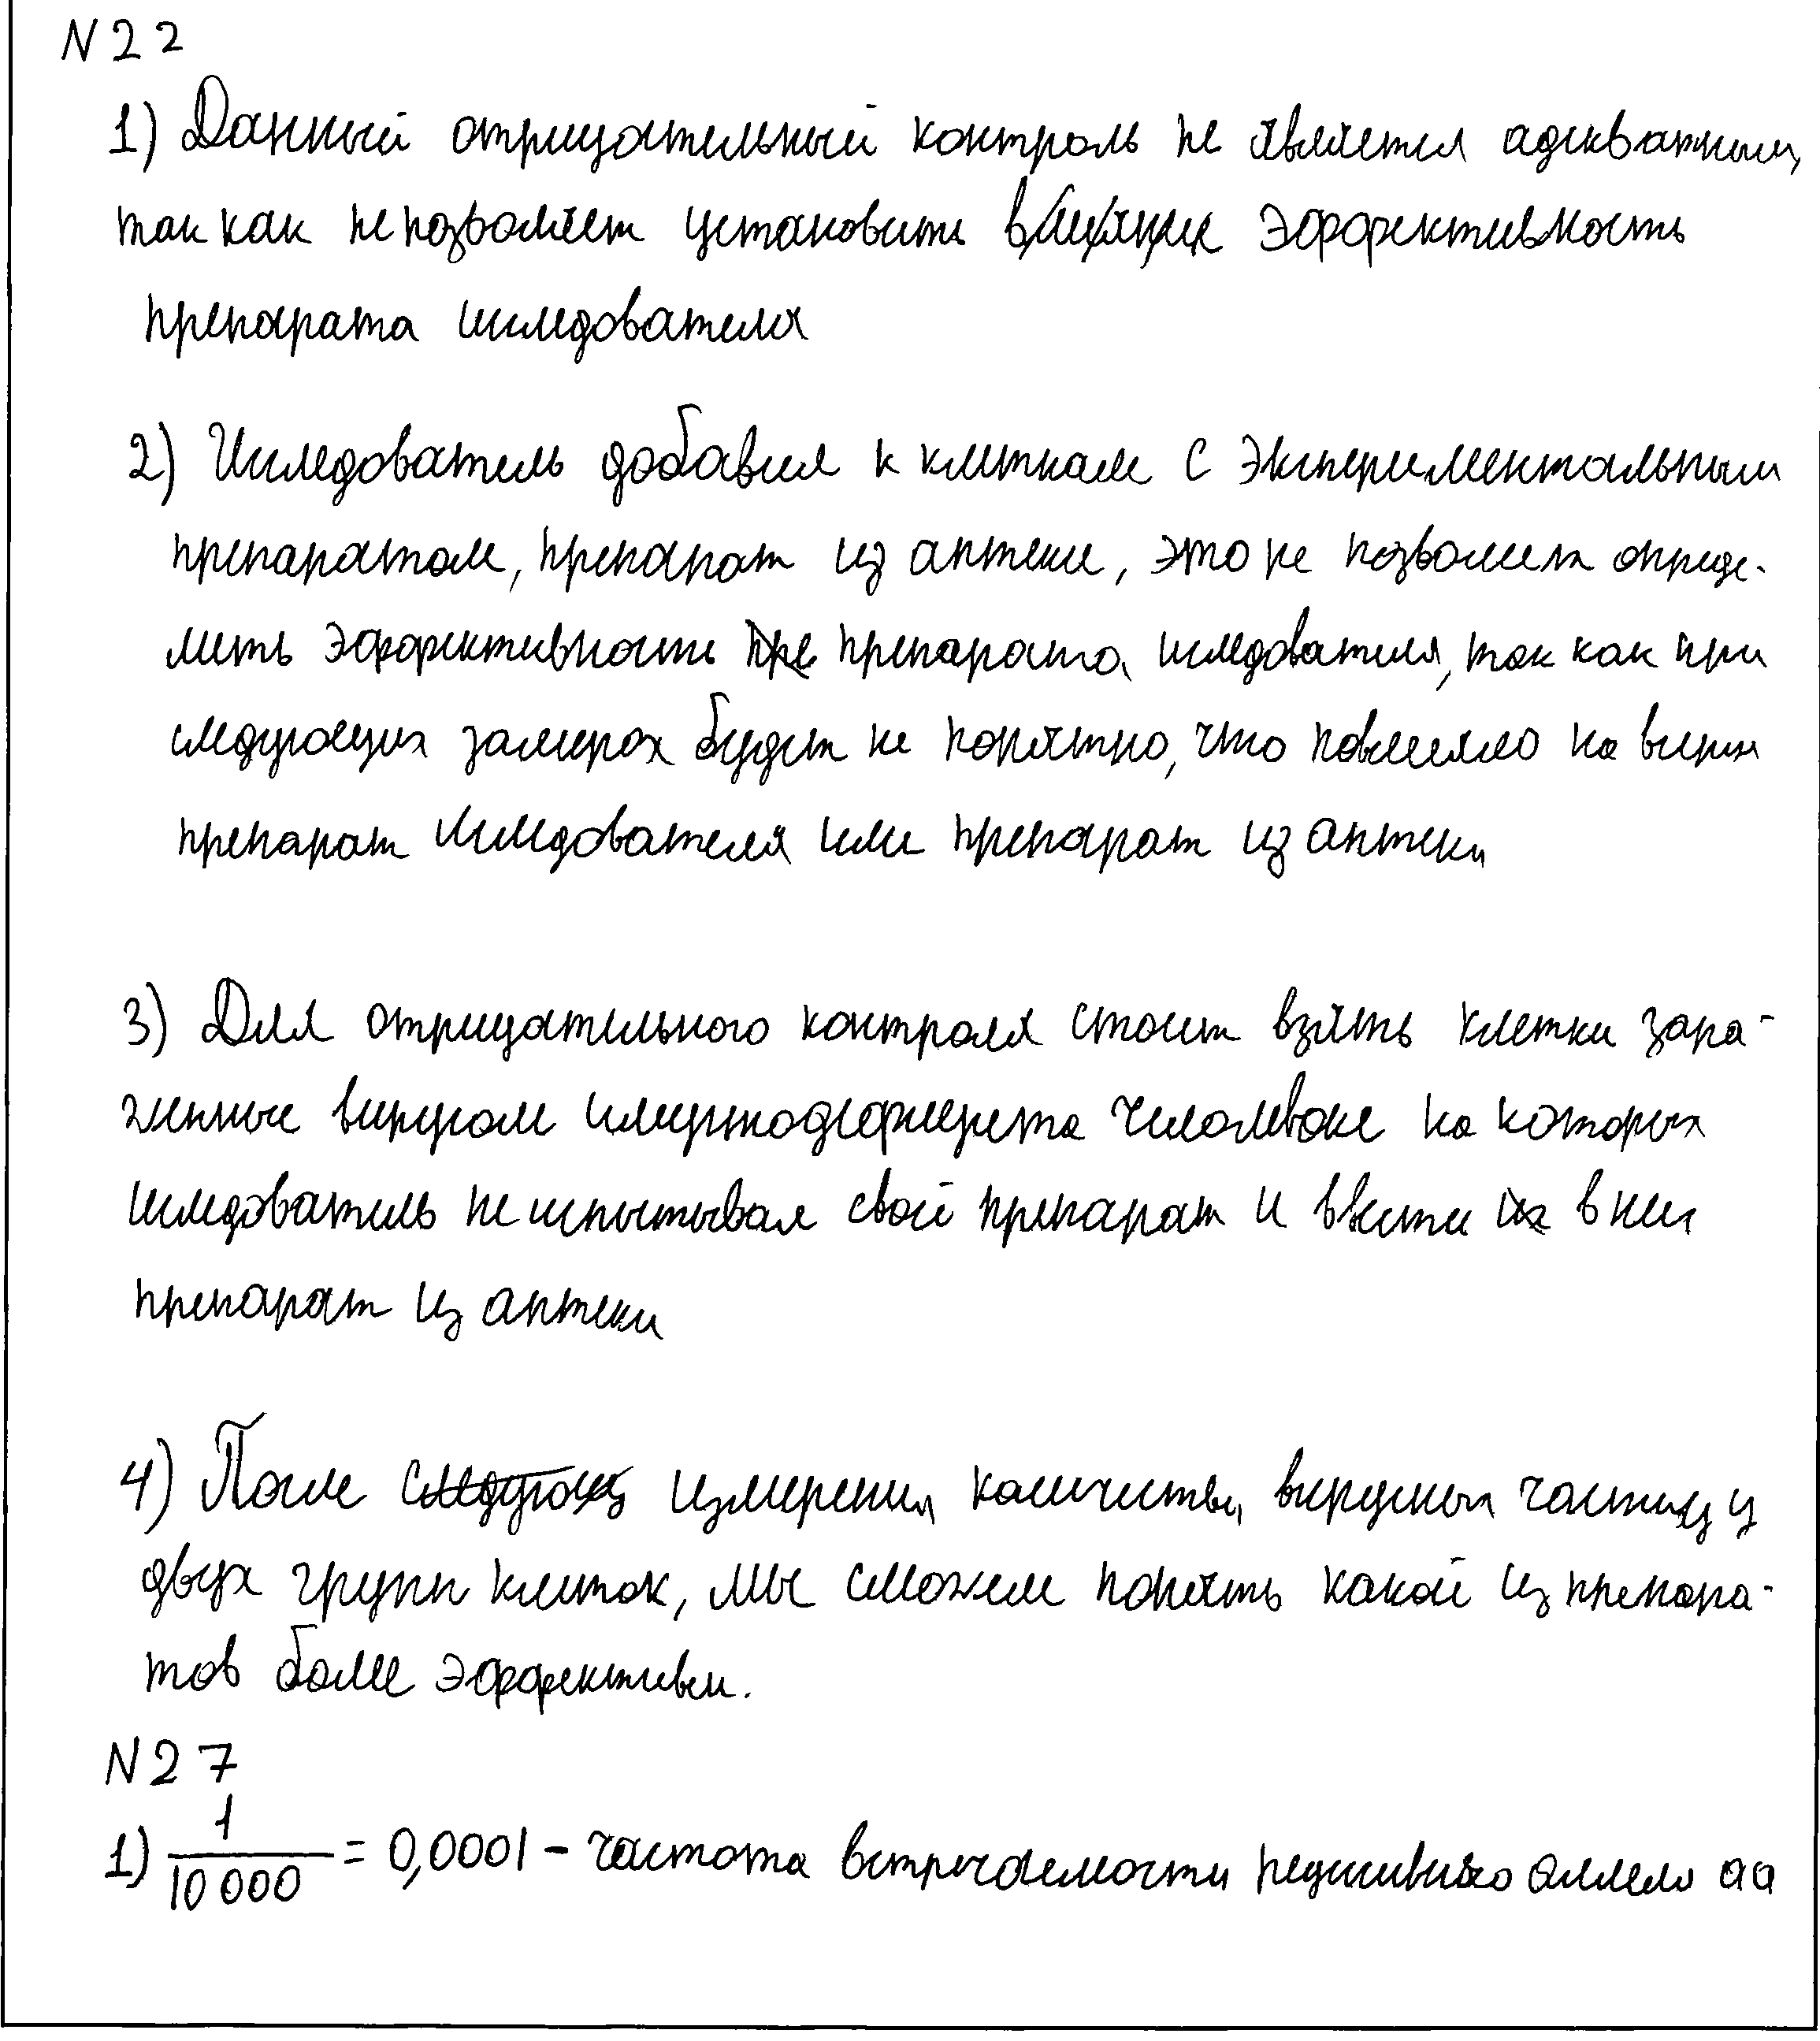 N 22
1) Данный отрицательный контроль не является адекватным,
так как не позволяет установить эффективность
препарата исследователя
2) Исследователь добавил к клеткам с экспериментальным
препаратом, препарат из аптеки, это не позволит опреде-
лить эффективность препарата исследователя, так как при
следующих замерах будет не понятно, что повлияло на вирус
препарат исследователя или препарат из аптеки
3) Для отрицательного контроля стоит взять клетки зара-
женные вирусом иммунодефицита человека на которых
исследователь не испытывал свой препарат и ввести в них
препарат из аптеки
4) После измерения количества вирусных частиц у
двух групп клеток, мы сможем понять какой из препара-
тов более эффективен.
N 27
1) 1/10 000 = 0,0001 - частота встречаемости рецессивного аллеля aa